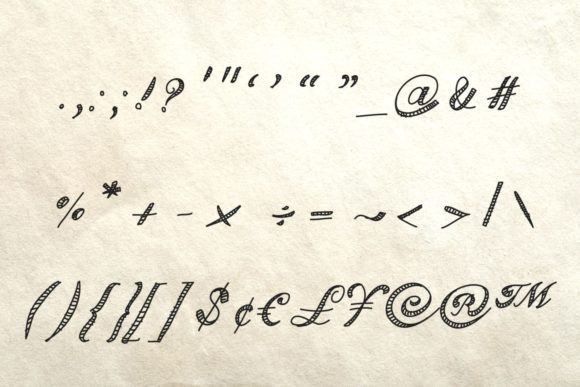 . , : ; ! ? ' " ‘ ’ “ ” _ @ & #
% * + - × ÷ = ~ < > / \
( ) { } [ ] $ ¢ € £ ¥ © ® ™